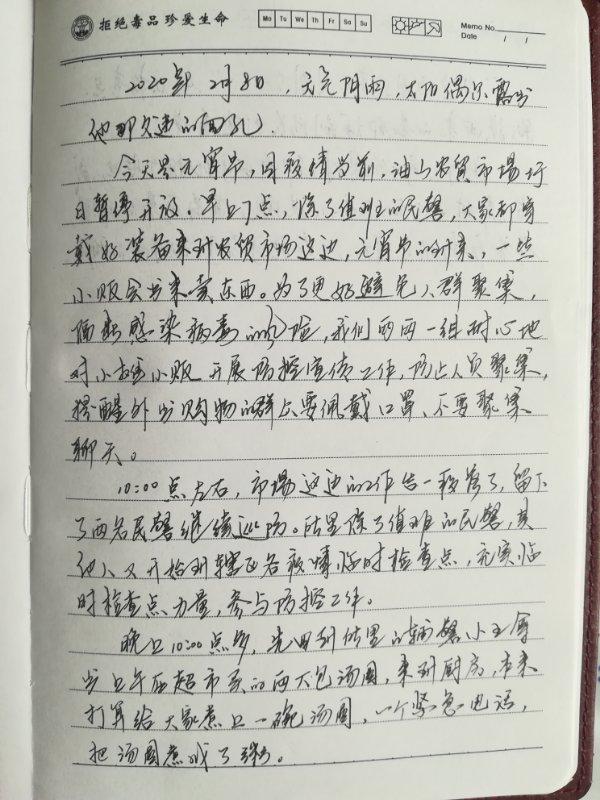 拒绝毒品珍爱生命
Mo Tu We Th Fr Sa Su
Memo No.
Date / /
2020年2月8日，天气阴雨，太阳偶尔露出
他那久违的面孔.
今天是元宵节，因疫情当前，油山农贸市场圩
日暂停开放。早上7点，除了值班的民警，大家都穿
戴好装备来到农贸市场这边，元宵节的到来，一些
小贩会出来卖东西。为了更好避免人群聚集，
隔离感染病毒的风险，我们两两一组耐心地
对小摊小贩开展防控宣传工作，防止人员聚集，
提醒外出购物的群众要佩戴口罩、不要聚集
聊天。
10:00点左右，市场这边的工作告一段落了，留下
了两名民警继续巡防。所里除了值班的民警，其
他人又开始到辖区各疫情临时检查点，充实临
时检查点力量，参与防控工作。
晚上10:00点多，先回到所里的辅警小王拿
出上午在超市买的两大包汤圆，来到厨房，本来
打算给大家煮上一碗汤圆，一个紧急电话，
把汤圆煮成了粥。